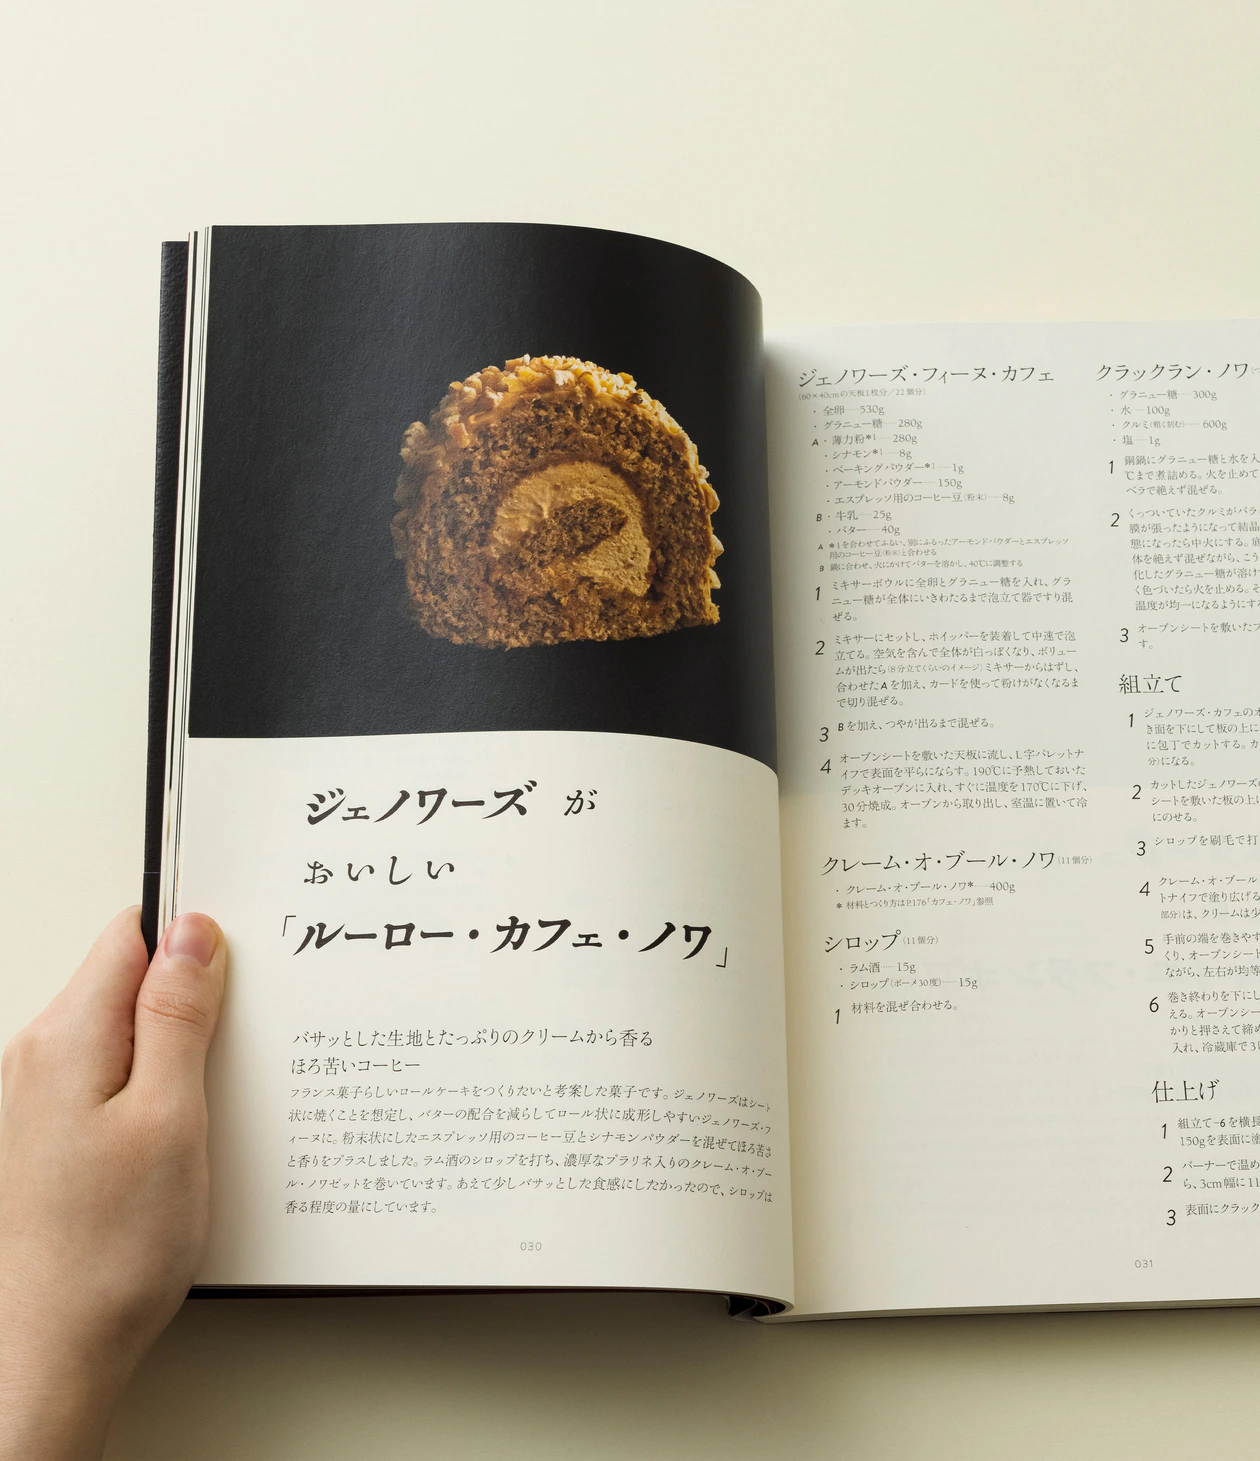 ジェノワーズ が
おいしい
「ルーロー・カフェ・ノワ」
バサッとした生地とたっぷりのクリームから香る
ほろ苦いコーヒー
フランス菓子らしいロールケーキをつくりたいと考案した菓子です。ジェノワーズはシート
状に焼くことを想定し、バターの配合を減らしてロール状に成形しやすいジェノワーズ・フ
ィーヌに。粉末状にしたエスプレッソ用のコーヒー豆とシナモンパウダーを混ぜてほろ苦さ
と香りをプラスしました。ラム酒のシロップを打ち、濃厚なプラリネ入りのクレーム・オ・ブー
ル・ノワゼットを巻いています。あえて少しバサッとした食感にしたかったので、シロップは
香る程度の量にしています。
030
ジェノワーズ・フィーヌ・カフェ
(60×40cmの天板1枚分/22個分)
・全卵……530g
・グラニュー糖……280g
A・薄力粉*1……280g
・シナモン*1……8g
・ベーキングパウダー*1……1g
・アーモンドパウダー……150g
・エスプレッソ用のコーヒー豆(粉末)……8g
B・牛乳……25g
・バター……40g
A *1を合わせてふるい、別にふるったアーモンドパウダーとエスプレッソ
用のコーヒー豆(粉末)と合わせる
B 鍋に合わせ、火にかけてバターを溶かし、40℃に調整する
1 ミキサーボウルに全卵とグラニュー糖を入れ、グラ
ニュー糖が全体にいきわたるまで泡立て器ですり混
ぜる。
2 ミキサーにセットし、ホイッパーを装着して中速で泡
立てる。空気を含んで全体が白っぽくなり、ボリュー
ムが出たら(8分立てくらいのイメージ)ミキサーからはずし、
合わせたAを加え、カードを使って粉けがなくなるま
で切り混ぜる。
3 Bを加え、つやが出るまで混ぜる。
4 オーブンシートを敷いた天板に流し、L字パレットナ
イフで表面を平らにならす。190℃に予熱しておいた
デッキオーブンに入れ、すぐに温度を170℃に下げ、
30分焼成。オーブンから取り出し、室温に置いて冷
ます。
クレーム・オ・ブール・ノワ(11個分)
・クレーム・オ・ブール・ノワ*……400g
* 材料とつくり方はP.176「カフェ・ノワ」参照
シロップ(11個分)
・ラム酒……15g
・シロップ(ボーメ30度)……15g
1 材料を混ぜ合わせる。
クラックラン・ノワ
・グラニュー糖……300g
・水……100g
・クルミ(粗く刻む)……600g
・塩……1g
1 銅鍋にグラニュー糖と水を入
℃まで煮詰める。火を止めて
ベラで絶えず混ぜる。
2 くっついていたクルミがパラ
膜が張ったようになって結晶
態になったら中火にする。底
体を絶えず混ぜながら、こう
化したグラニュー糖が溶け
く色づいたら火を止める。そ
温度が均一になるようにす
3 オーブンシートを敷いたプ
す。
組立て
1 ジェノワーズ・カフェのオ
き面を下にして板の上に
に包丁でカットする。カ
分)になる。
2 カットしたジェノワーズ
シートを敷いた板の上に
にのせる。
3 シロップを刷毛で打
4 クレーム・オ・ブール
トナイフで塗り広げる
部分)は、クリームは少
5 手前の端を巻きやす
くり、オーブンシート
ながら、左右が均等
6 巻き終わりを下にし
える。オーブンシー
かりと押さえて締め
入れ、冷蔵庫で3
仕上げ
1 組立て-6を横長
150gを表面に塗
2 バーナーで温め
ら、3cm幅に11
3 表面にクラック
031